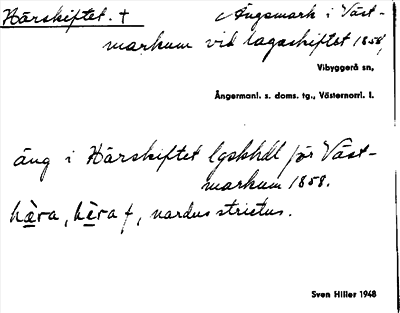 Härskiftet. † Ängsmark i Väst-
markum vid lagaskiftet 1858,
Vibyggerå sn,
Ångermanl. s. doms. tg., Västernorrl. l.
äng i Härskiftet lgskhdl för Väst-
markum 1858.
hæ̀ra, hèra f, nardus strictus.
Sven Hiller 1948